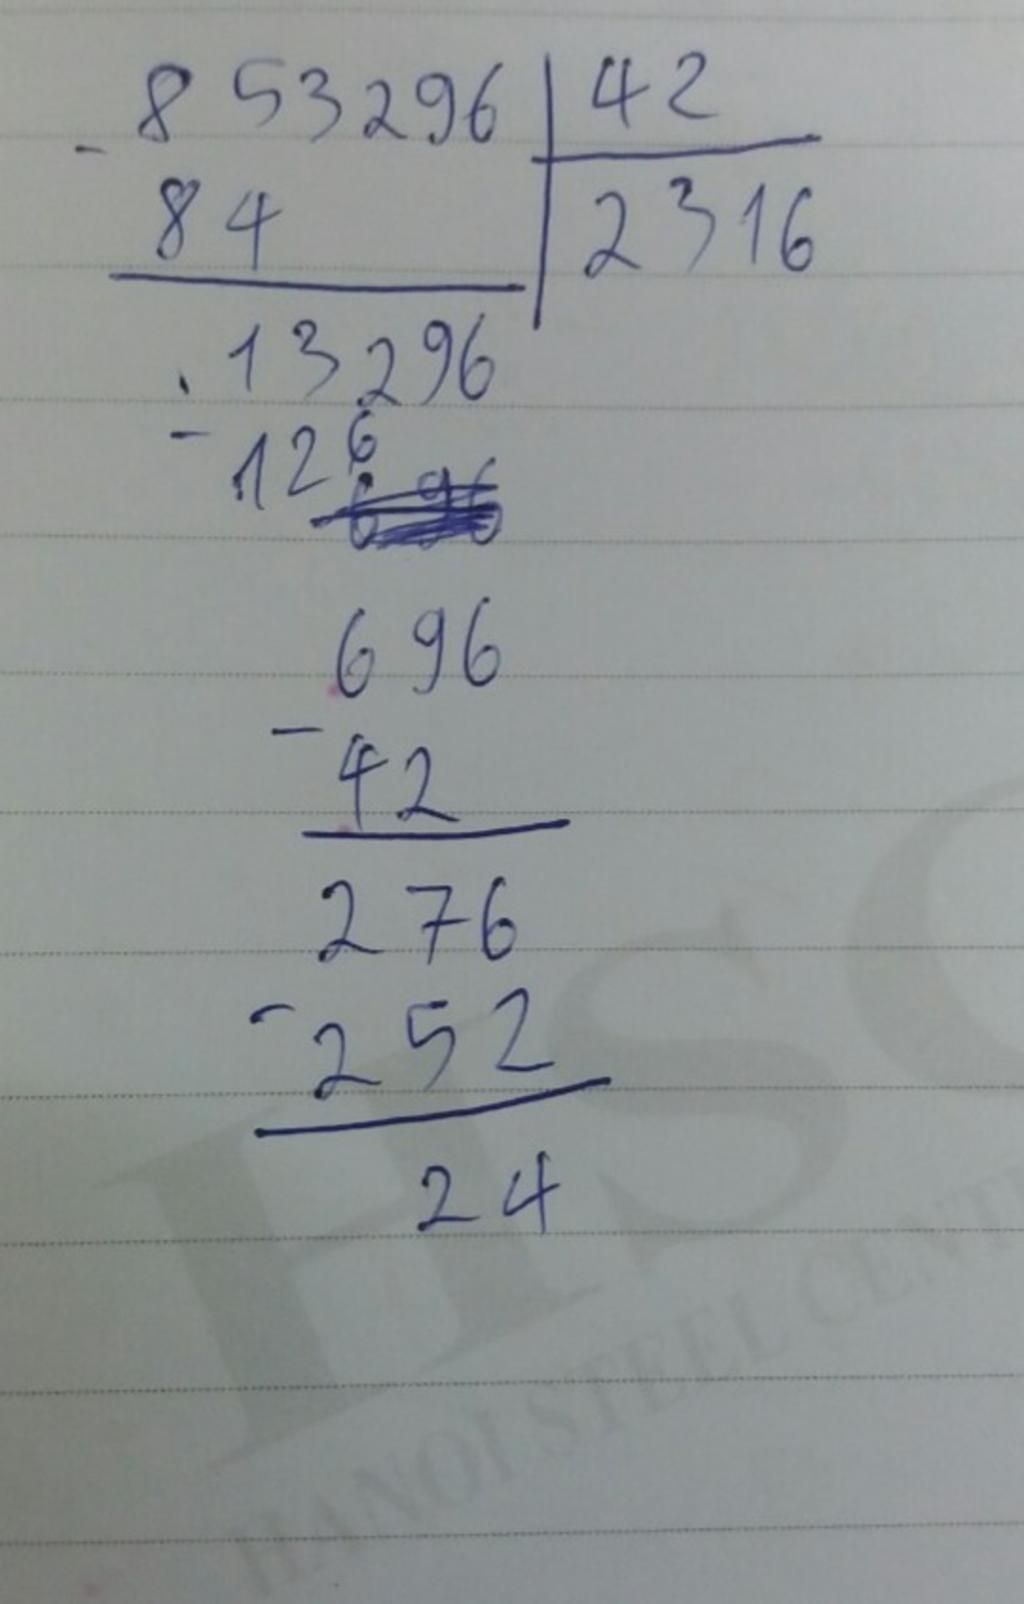 853296 | 42
- 84 | 2316
13296
- 126
696
- 42
276
- 252
24
HSC
HANOI STEEL CENT